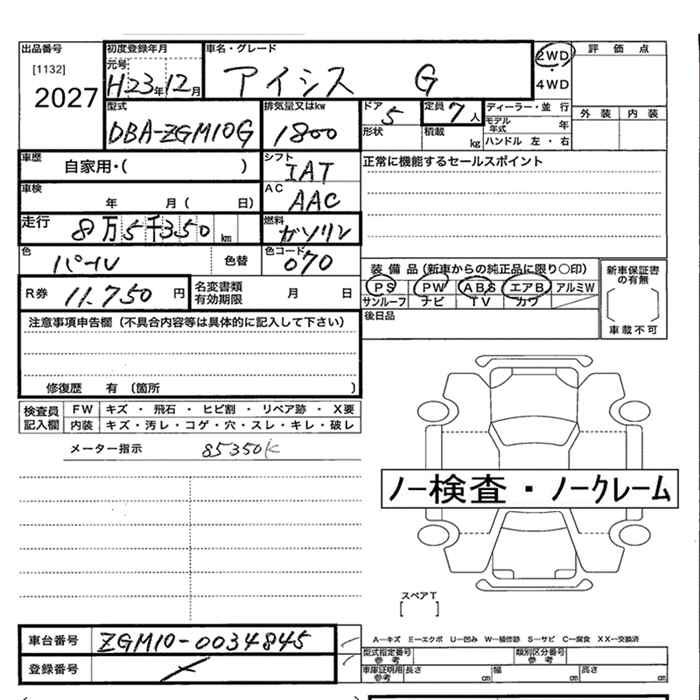 出品番号 初度登録年月 車名・グレード 2WD 評価点
[1132] 元号 H23年12月 アイシス G ・
2027 4WD
型式 排気量又はkw ドア 5 定員 7人 ディーラー・並行 外装 内装
DBA-ZGM10G 1800 形状 積載 kg モデル年式 年
ハンドル 左・右
車歴 自家用・( ) シフト IAT 正常に機能するセールスポイント
車検 年 月( 日) AC AAC
走行 8万5千350km 燃料 ガソリン
色 パール 色替 色コード 070 装備品(新車からの純正品に限り○印) 新車保証書の有無
R券 11.750円 名変書類有効期限 月 日 PS PW ABS エアB アルミW
サンルーフ ナビ TV カワ 車載不可
注意事項申告欄(不具合内容等は具体的に記入して下さい) 後日品
修復歴 有 (箇所 )
検査員記入欄 FW キズ・飛石・ヒビ割・リペア跡・X要
内装 キズ・汚レ・コゲ・穴・スレ・キレ・破レ
メーター指示 85350K
ノー検査・ノークレーム
スペアT
[ ]
車台番号 ZGM10-0034845 A―キズ E―エクボ U―凹み W―補修跡 S―サビ C―腐食 XX―交換済
登録番号 型式指定番号 参考 類別区分番号 参考
車庫証明用 参考 長さ cm 幅 cm 高さ cm